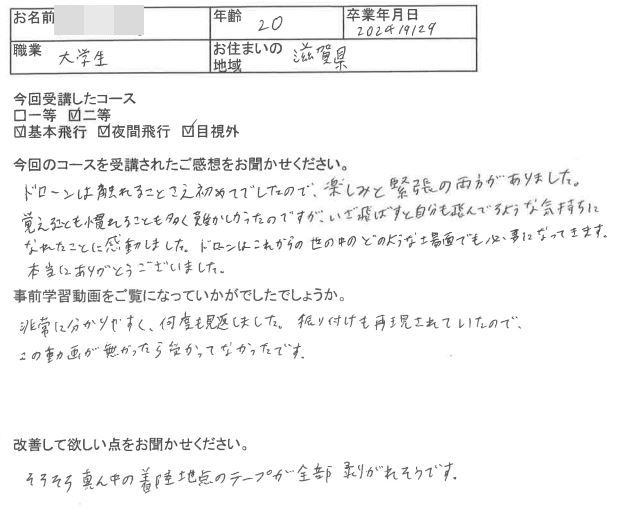 お名前 年齢 20 卒業年月日 2024/9/29
職業 大学生 お住まいの地域 滋賀県
今回受講したコース
□一等 ☑二等
☑基本飛行 ☑夜間飛行 ☑目視外
今回のコースを受講されたご感想をお聞かせください。
ドローンは触れることさえ初めてでしたので、楽しみと緊張の両方がありました。
覚えることも慣れることも多く難かしかったのですが、いざ飛ばすと自分も飛んでるような気持ちに
なれたことに感動しました。ドローンはこれからの世の中のどのような場面でも必要になってきます。
本当にありがとうございました。
事前学習動画をご覧になっていかがでしたでしょうか。
非常に分かりやすく、何度も見返しました。振り付けも再現されていたので、
この動画が無かったら受かってなかったです。
改善して欲しい点をお聞かせください。
そろそろ真ん中の着陸地点のテープが全部剥がれそうです。